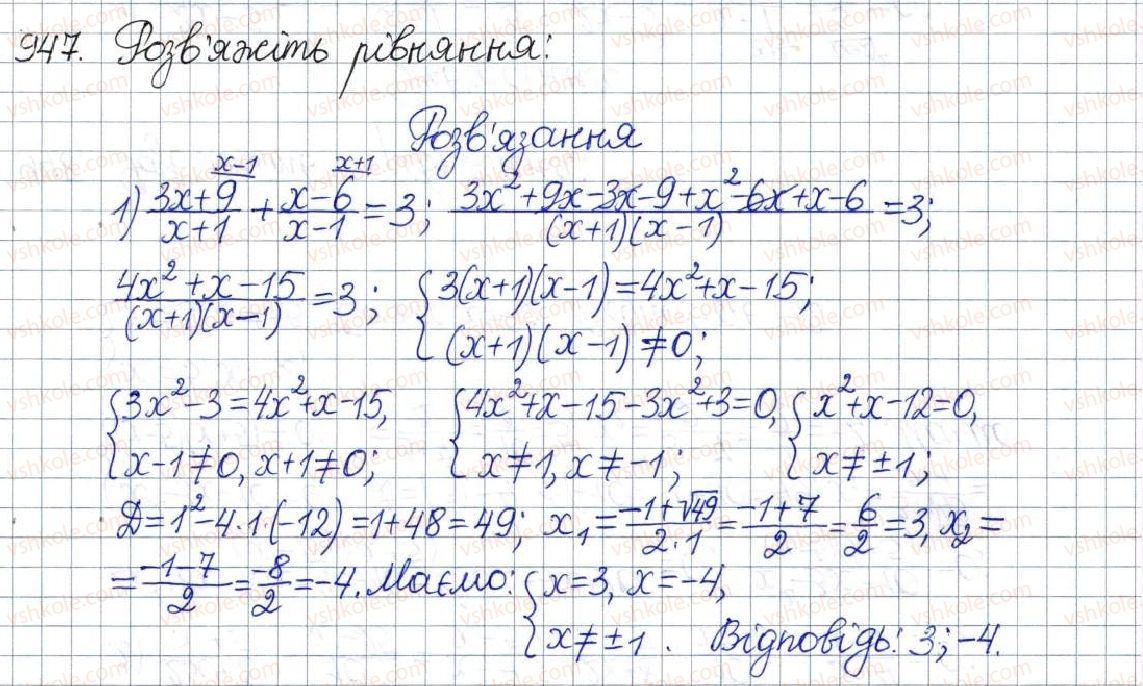 947. Розв'яжіть рівняння:
Розв'язання
1) (3x+9)/(x+1) [x-1] + (x-6)/(x-1) [x+1] = 3; (3x²+9x-3x-9+x²-6x+x-6)/((x+1)(x-1)) = 3;
(4x²+x-15)/((x+1)(x-1)) = 3; { 3(x+1)(x-1)=4x²+x-15;
(x+1)(x-1)≠0;
{ 3x²-3=4x²+x-15, { 4x²+x-15-3x²+3=0, { x²+x-12=0,
x-1≠0, x+1≠0; x≠1, x≠-1; x≠±1;
D=1²-4·1·(-12)=1+48=49; x₁=(-1+√49)/(2·1)=(-1+7)/2=6/2=3, x₂=
=(-1-7)/2=-8/2=-4. Маємо: { x=3, x=-4,
x≠±1. Відповідь: 3; -4.